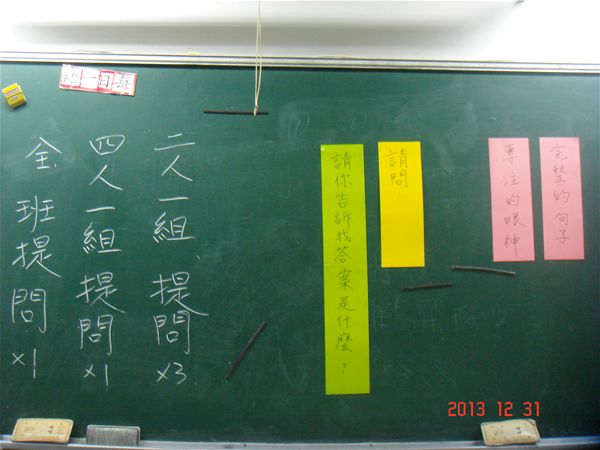 完整的句子
專注的眼神
請問.
請你告訴我答案是什麼?
二人一組提問×3
四人一組提問×1
全班提問×1
2013 12 31